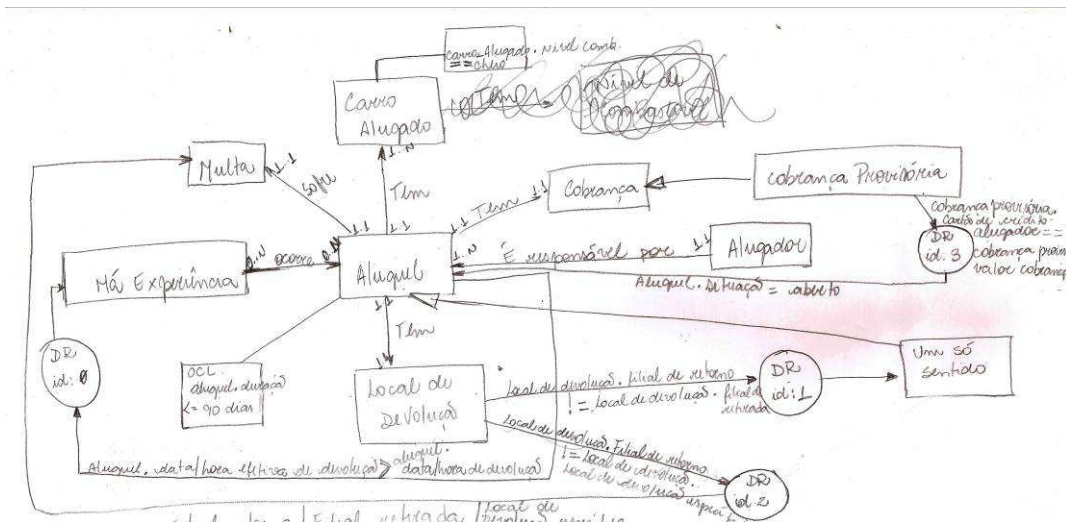 Carro_Alugado.Nível comb.
== cheio
Carro
Alugado
Tem
Nível de
Combustível
1..N
Multa
1..1
Sofre
Tem
1..1
Tem
1..1
Cobrança
Cobrança Provisória
cobrança provisória.
Cartão de crédito.
alugador ==
cobrança
valor cobrança
DR
id: 3
1..1
1..1
1..N
Aluguel
É responsável por
1..1
Alugador
Aluguel.Situação = aberto
Má Experiência
0..N
ocorre
1..1
Tem
1..1
DR
id: 0
OCL
aluguel.duração
<= 90 dias
Local de
Devolução
Local de devolução.filial de retorno
!= Local de devolução.filial de
retirada
DR
id: 1
Um só
sentido
Local de devolução.Filial de retorno
!= Local de devolução.
Local de devolução
DR
id: 2
Aluguel.data/hora efetivas de devolução > aluguel.
data/hora de devolução
Filial retirada / Local de